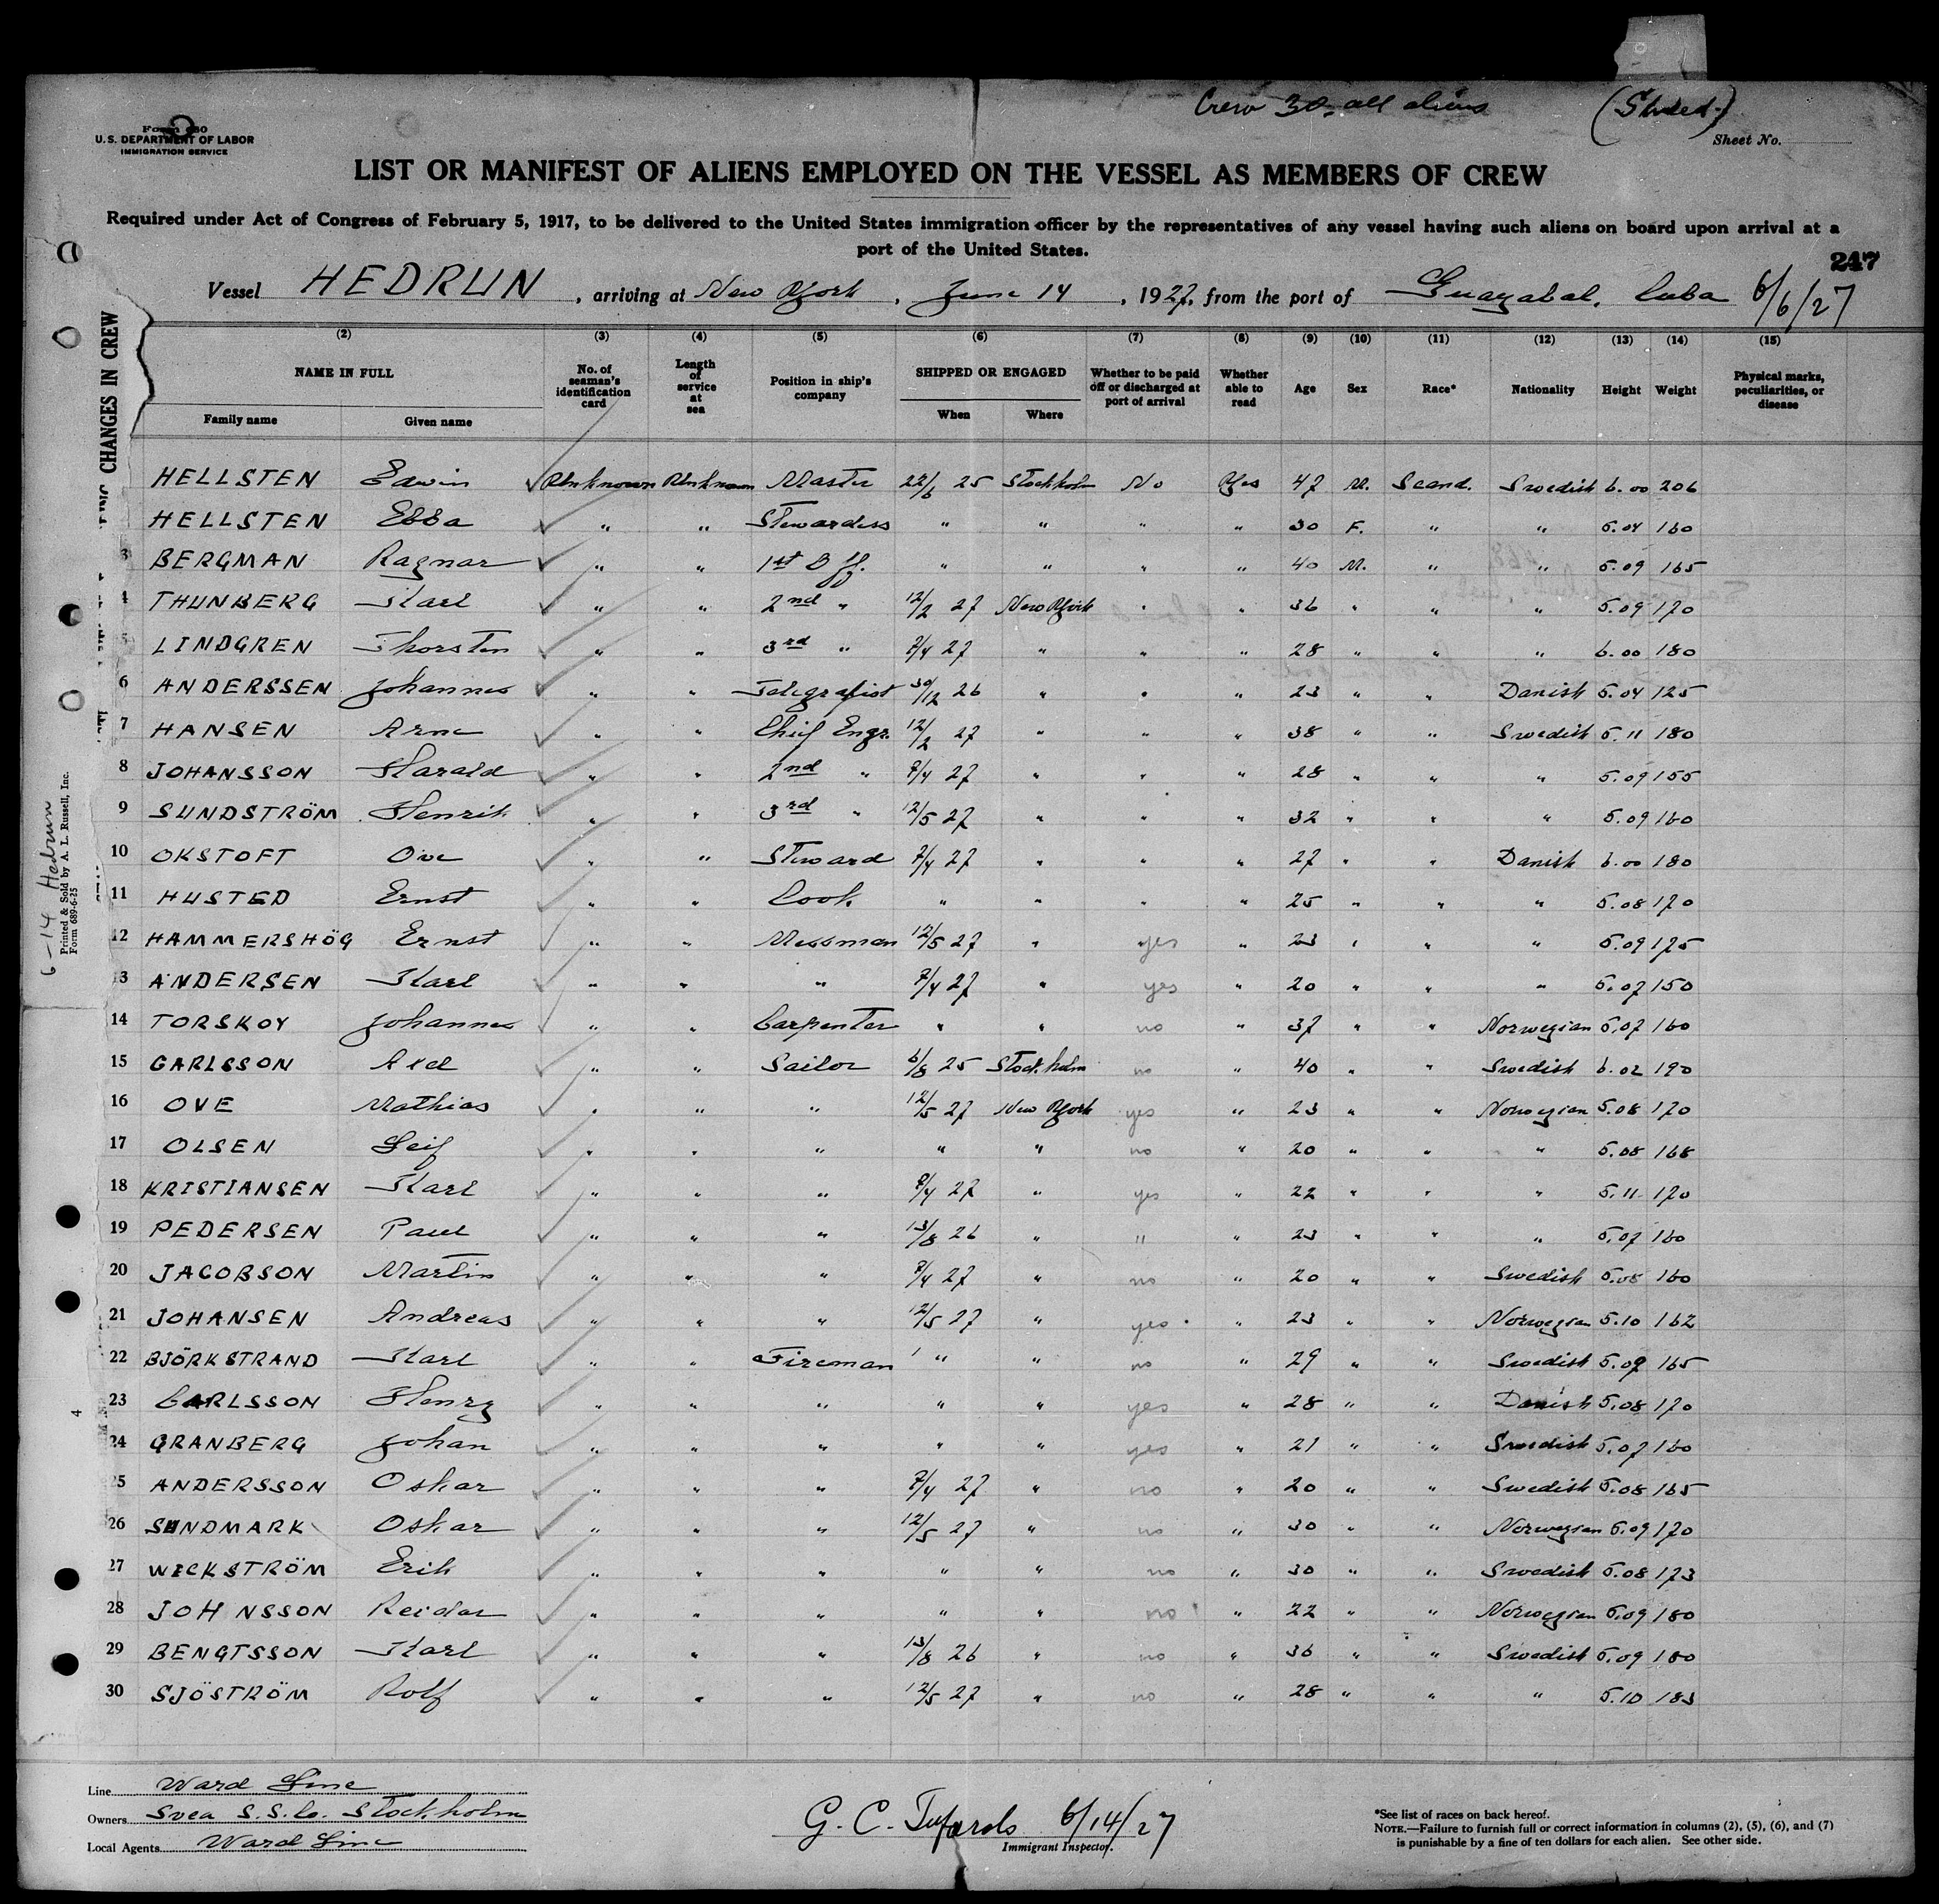 Crew 30, all aliens
Form 680
U.S. DEPARTMENT OF LABOR
IMMIGRATION SERVICE
Sheet No.
LIST OR MANIFEST OF ALIENS EMPLOYED ON THE VESSEL AS MEMBERS OF CREW
Required under Act of Congress of February 5, 1917, to be delivered to the United States immigration officer by the representatives of any vessel having such aliens on board upon arrival at a
port of the United States.
247
Vessel HEDRUN, arriving at New York, June 14, 1927, from the port of Guayabal, Cuba 6/6/27
CHANGES IN CREW
(2) (3) (4) (5) (6) (7) (8) (9) (10) (11) (12) (13) (14) (15)
NAME IN FULL No. of seaman's identification card Length of service at sea Position in ship's company SHIPPED OR ENGAGED Whether to be paid off or discharged at port of arrival Whether able to read Age Sex Race* Nationality Height Weight Physical marks, peculiarities, or disease
Family name Given name When Where
HELLSTEN Edwin Unknown Unknown Master 22/6 25 Stockholm No Yes 47 M. Scand. Swedish 6.00 206
HELLSTEN Ebba " " Stewardess " " " " 30 F. " " 5.04 160
3 BERGMAN Ragnar " " 1st Off. " " " " 40 M. " " 5.09 165
4 THUNBERG Karl " " 2nd " 12/2 27 New York " " 36 " " " 5.09 170
5 LINDGREN Thorsten " " 3rd " 7/4 27 " " " 28 " " " 6.00 180
6 ANDERSSEN Johannes " " Telegrafist 30/12 26 " " " 23 " " Danish 5.04 125
7 HANSEN Arne " " Chief Engr. 12/2 27 " " " 38 " " Swedish 5.11 180
8 JOHANSSON Harald " " 2nd " 7/4 27 " " " 28 " " " 5.09 155
9 SUNDSTRÖM Henrik " " 3rd " 12/5 27 " " " 32 " " " 5.09 160
10 OKSTOFT Ove " " Steward 7/4 27 " " " 27 " " Danish 6.00 180
11 HUSTED Ernst " " Cook " " " " 25 " " " 5.08 170
12 HAMMERSHÖG Ernst " " Messman 12/5 27 " yes " 23 " " " 5.09 175
13 ANDERSEN Karl " " " 7/4 27 " yes " 20 " " " 5.07 150
14 TORSKOY Johannes " " Carpenter " " no " 37 " " Norwegian 5.07 160
15 CARLSSON Axel " " Sailor 6/8 25 Stockholm no " 40 " " Swedish 6.02 190
16 OVE Mathias " " " 12/5 27 New York yes " 23 " " Norwegian 5.08 170
17 OLSEN Leif " " " " " no " 20 " " " 5.08 168
18 KRISTIANSEN Karl " " " 7/4 27 " yes " 22 " " " 5.11 170
19 PEDERSEN Paul " " " 13/8 26 " " " 23 " " " 5.07 160
20 JACOBSON Martin " " " 7/4 27 " no " 20 " " Swedish 5.08 160
21 JOHANSEN Andreas " " " 12/5 27 " yes " 23 " " Norwegian 5.10 162
22 BJÖRKSTRAND Karl " " Fireman " " no " 29 " " Swedish 5.09 165
23 CARLSSON Henry " " " " " yes " 28 " " Danish 5.08 170
24 GRANBERG Johan " " " " " yes " 21 " " Swedish 5.07 160
25 ANDERSSON Oskar " " " 7/4 27 " no " 20 " " Swedish 5.08 165
26 SUNDMARK Oskar " " " 12/5 27 " no " 30 " " Norwegian 5.09 170
27 WICKSTRÖM Erik " " " " " no " 30 " " Swedish 5.08 173
28 JOHNSSON Reidar " " " " " no " 22 " " Norwegian 5.09 180
29 BENGTSSON Karl " " " 13/8 26 " no " 36 " " Swedish 5.09 180
30 SJÖSTRÖM Rolf " " " 12/5 27 " no " 28 " " " 5.10 183
6-14 Hedrun
Printed & Sold by A. L. Russell, Inc.
Form 689-6-25
4
Line Ward Line
Owners Svea S.S. Co. Stockholm
Local Agents Ward Line
G. C. 6/14/27
Immigrant Inspector.
*See list of races on back hereof.
NOTE.—Failure to furnish full or correct information in columns (2), (5), (6), and (7)
is punishable by a fine of ten dollars for each alien. See other side.